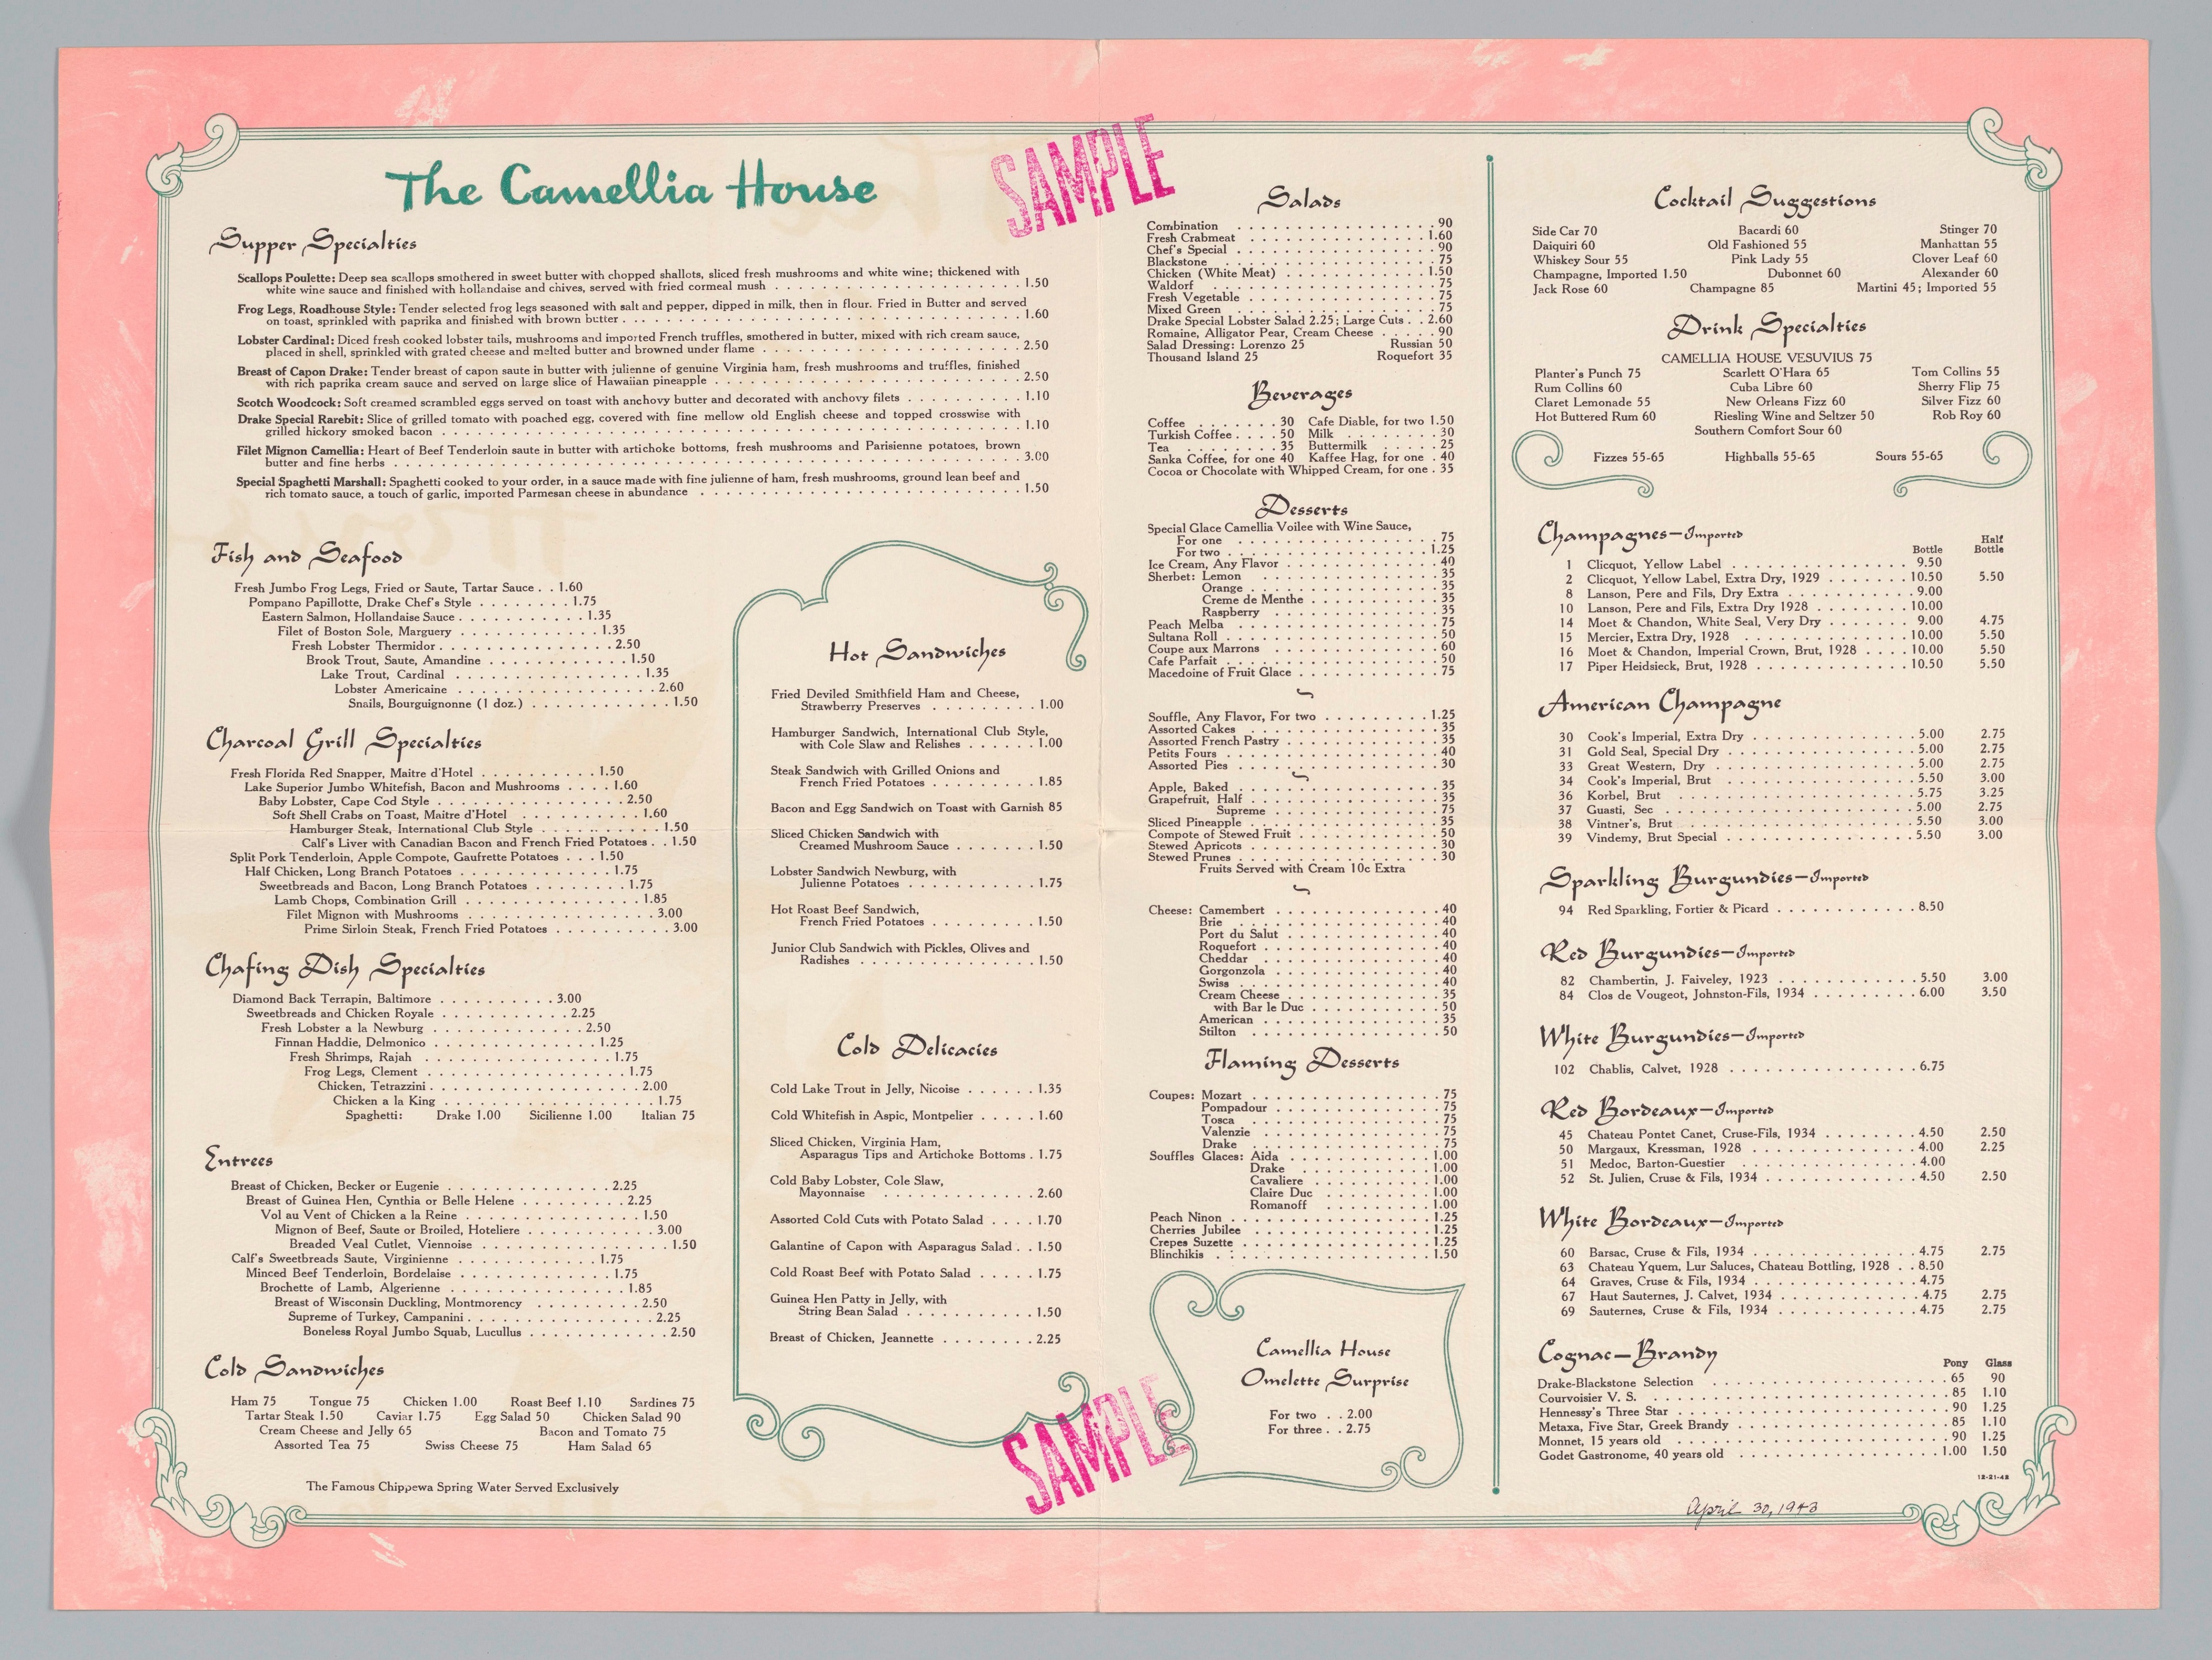 The Camellia House
SAMPLE
Supper Specialties
Scallops Poulette: Deep sea scallops smothered in sweet butter with chopped shallots, sliced fresh mushrooms and white wine; thickened with
white wine sauce and finished with hollandaise and chives, served with fried cormeal mush . . . 1.50
Frog Legs, Roadhouse Style: Tender selected frog legs seasoned with salt and pepper, dipped in milk, then in flour. Fried in Butter and served
on toast, sprinkled with paprika and finished with brown butter . . . 1.60
Lobster Cardinal: Diced fresh cooked lobster tails, mushrooms and imported French truffles, smothered in butter, mixed with rich cream sauce,
placed in shell, sprinkled with grated cheese and melted butter and browned under flame . . . 2.50
Breast of Capon Drake: Tender breast of capon saute in butter with julienne of genuine Virginia ham, fresh mushrooms and truffles, finished
with rich paprika cream sauce and served on large slice of Hawaiian pineapple . . . 2.50
Scotch Woodcock: Soft creamed scrambled eggs served on toast with anchovy butter and decorated with anchovy filets . . . 1.10
Drake Special Rarebit: Slice of grilled tomato with poached egg, covered with fine mellow old English cheese and topped crosswise with
grilled hickory smoked bacon . . . 1.10
Filet Mignon Camellia: Heart of Beef Tenderloin saute in butter with artichoke bottoms, fresh mushrooms and Parisienne potatoes, brown
butter and fine herbs . . . 3.00
Special Spaghetti Marshall: Spaghetti cooked to your order, in a sauce made with fine julienne of ham, fresh mushrooms, ground lean beef and
rich tomato sauce, a touch of garlic, imported Parmesan cheese in abundance . . . 1.50
Fish and Seafood
Fresh Jumbo Frog Legs, Fried or Saute, Tartar Sauce . . 1.60
Pompano Papillotte, Drake Chef's Style . . . 1.75
Eastern Salmon, Hollandaise Sauce . . . 1.35
Filet of Boston Sole, Marguery . . . 1.35
Fresh Lobster Thermidor . . . 2.50
Brook Trout, Saute, Amandine . . . 1.50
Lake Trout, Cardinal . . . 1.35
Lobster Americaine . . . 2.60
Snails, Bourguignonne (1 doz.) . . . 1.50
Charcoal Grill Specialties
Fresh Florida Red Snapper, Maitre d'Hotel . . . 1.50
Lake Superior Jumbo Whitefish, Bacon and Mushrooms . . . 1.60
Baby Lobster, Cape Cod Style . . . 2.50
Soft Shell Crabs on Toast, Maitre d'Hotel . . . 1.60
Hamburger Steak, International Club Style . . . 1.50
Calf's Liver with Canadian Bacon and French Fried Potatoes . . 1.50
Split Pork Tenderloin, Apple Compote, Gaufrette Potatoes . . . 1.50
Half Chicken, Long Branch Potatoes . . . 1.75
Sweetbreads and Bacon, Long Branch Potatoes . . . 1.75
Lamb Chops, Combination Grill . . . 1.85
Filet Mignon with Mushrooms . . . 3.00
Prime Sirloin Steak, French Fried Potatoes . . . 3.00
Chafing Dish Specialties
Diamond Back Terrapin, Baltimore . . . 3.00
Sweetbreads and Chicken Royale . . . 2.25
Fresh Lobster a la Newburg . . . 2.50
Finnan Haddie, Delmonico . . . 1.25
Fresh Shrimps, Rajah . . . 1.75
Frog Legs, Clement . . . 1.75
Chicken, Tetrazzini . . . 2.00
Chicken a la King . . . 1.75
Spaghetti: Drake 1.00 Sicilienne 1.00 Italian 75
Entrees
Breast of Chicken, Becker or Eugenie . . . 2.25
Breast of Guinea Hen, Cynthia or Belle Helene . . . 2.25
Vol au Vent of Chicken a la Reine . . . 1.50
Mignon of Beef, Saute or Broiled, Hoteliere . . . 3.00
Breaded Veal Cutlet, Viennoise . . . 1.50
Calf's Sweetbreads Saute, Virginienne . . . 1.75
Minced Beef Tenderloin, Bordelaise . . . 1.75
Brochette of Lamb, Algerienne . . . 1.85
Breast of Wisconsin Duckling, Montmorency . . . 2.50
Supreme of Turkey, Campanini . . . 2.25
Boneless Royal Jumbo Squab, Lucullus . . . 2.50
Cold Sandwiches
Ham 75 Tongue 75 Chicken 1.00 Roast Beef 1.10 Sardines 75
Tartar Steak 1.50 Caviar 1.75 Egg Salad 50 Chicken Salad 90
Cream Cheese and Jelly 65 Bacon and Tomato 75
Assorted Tea 75 Swiss Cheese 75 Ham Salad 65
The Famous Chippewa Spring Water Served Exclusively
Hot Sandwiches
Fried Deviled Smithfield Ham and Cheese,
Strawberry Preserves . . . 1.00
Hamburger Sandwich, International Club Style,
with Cole Slaw and Relishes . . . 1.00
Steak Sandwich with Grilled Onions and
French Fried Potatoes . . . 1.85
Bacon and Egg Sandwich on Toast with Garnish 85
Sliced Chicken Sandwich with
Creamed Mushroom Sauce . . . 1.50
Lobster Sandwich Newburg, with
Julienne Potatoes . . . 1.75
Hot Roast Beef Sandwich,
French Fried Potatoes . . . 1.50
Junior Club Sandwich with Pickles, Olives and
Radishes . . . 1.50
Cold Delicacies
Cold Lake Trout in Jelly, Nicoise . . . 1.35
Cold Whitefish in Aspic, Montpelier . . . 1.60
Sliced Chicken, Virginia Ham,
Asparagus Tips and Artichoke Bottoms . 1.75
Cold Baby Lobster, Cole Slaw,
Mayonnaise . . . 2.60
Assorted Cold Cuts with Potato Salad . . . 1.70
Galantine of Capon with Asparagus Salad . . 1.50
Cold Roast Beef with Potato Salad . . . 1.75
Guinea Hen Patty in Jelly, with
String Bean Salad . . . 1.50
Breast of Chicken, Jeannette . . . 2.25
SAMPLE
Salads
Combination . . . 90
Fresh Crabmeat . . . 1.60
Chef's Special . . . 90
Blackstone . . . 75
Chicken (White Meat) . . . 1.50
Waldorf . . . 75
Fresh Vegetable . . . 75
Mixed Green . . . 75
Drake Special Lobster Salad 2.25; Large Cuts . . 2.60
Romaine, Alligator Pear, Cream Cheese . . . 90
Salad Dressing: Lorenzo 25 Russian 50
Thousand Island 25 Roquefort 35
Beverages
Coffee . . . 30 Cafe Diable, for two 1.50
Turkish Coffee . . . 50 Milk . . . 30
Tea . . . 35 Buttermilk . . . 25
Sanka Coffee, for one 40 Kaffee Hag, for one . 40
Cocoa or Chocolate with Whipped Cream, for one . 35
Desserts
Special Glace Camellia Voilee with Wine Sauce,
For one . . . 75
For two . . . 1.25
Ice Cream, Any Flavor . . . 40
Sherbet: Lemon . . . 35
Orange . . . 35
Creme de Menthe . . . 35
Raspberry . . . 35
Peach Melba . . . 75
Sultana Roll . . . 50
Coupe aux Marrons . . . 60
Cafe Parfait . . . 50
Macedoine of Fruit Glace . . . 75
Souffle, Any Flavor, For two . . . 1.25
Assorted Cakes . . . 35
Assorted French Pastry . . . 35
Petits Fours . . . 40
Assorted Pies . . . 30
Apple, Baked . . . 35
Grapefruit, Half . . . 35
Supreme . . . 75
Sliced Pineapple . . . 35
Compote of Stewed Fruit . . . 50
Stewed Apricots . . . 30
Stewed Prunes . . . 30
Fruits Served with Cream 10c Extra
Cheese: Camembert . . . 40
Brie . . . 40
Port du Salut . . . 40
Roquefort . . . 40
Cheddar . . . 40
Gorgonzola . . . 40
Swiss . . . 40
Cream Cheese . . . 35
with Bar le Duc . . . 50
American . . . 35
Stilton . . . 50
Flaming Desserts
Coupes: Mozart . . . 75
Pompadour . . . 75
Tosca . . . 75
Valenzie . . . 75
Drake . . . 75
Souffles Glaces: Aida . . . 1.00
Drake . . . 1.00
Cavaliere . . . 1.00
Claire Duc . . . 1.00
Romanoff . . . 1.00
Peach Ninon . . . 1.25
Cherries Jubilee . . . 1.25
Crepes Suzette . . . 1.25
Blinchikis . . . 1.50
Camellia House
Omelette Surprise
For two . . 2.00
For three . . 2.75
Cocktail Suggestions
Side Car 70 Bacardi 60 Stinger 70
Daiquiri 60 Old Fashioned 55 Manhattan 55
Whiskey Sour 55 Pink Lady 55 Clover Leaf 60
Champagne, Imported 1.50 Dubonnet 60 Alexander 60
Jack Rose 60 Champagne 85 Martini 45; Imported 55
Drink Specialties
CAMELLIA HOUSE VESUVIUS 75
Planter's Punch 75 Scarlett O'Hara 65 Tom Collins 55
Rum Collins 60 Cuba Libre 60 Sherry Flip 75
Claret Lemonade 55 New Orleans Fizz 60 Silver Fizz 60
Hot Buttered Rum 60 Riesling Wine and Seltzer 50 Rob Roy 60
Southern Comfort Sour 60
Fizzes 55-65 Highballs 55-65 Sours 55-65
Champagnes—Imported
Bottle Half Bottle
1 Clicquot, Yellow Label . . . 9.50
2 Clicquot, Yellow Label, Extra Dry, 1929 . . . 10.50 5.50
8 Lanson, Pere and Fils, Dry Extra . . . 9.00
10 Lanson, Pere and Fils, Extra Dry 1928 . . . 10.00
14 Moet & Chandon, White Seal, Very Dry . . . 9.00 4.75
15 Mercier, Extra Dry, 1928 . . . 10.00 5.50
16 Moet & Chandon, Imperial Crown, Brut, 1928 . . . 10.00 5.50
17 Piper Heidsieck, Brut, 1928 . . . 10.50 5.50
American Champagne
30 Cook's Imperial, Extra Dry . . . 5.00 2.75
31 Gold Seal, Special Dry . . . 5.00 2.75
33 Great Western, Dry . . . 5.00 2.75
34 Cook's Imperial, Brut . . . 5.50 3.00
36 Korbel, Brut . . . 5.75 3.25
37 Guasti, Sec . . . 5.00 2.75
38 Vintner's, Brut . . . 5.50 3.00
39 Vindemy, Brut Special . . . 5.50 3.00
Sparkling Burgundies—Imported
94 Red Sparkling, Fortier & Picard . . . 8.50
Red Burgundies—Imported
82 Chambertin, J. Faiveley, 1923 . . . 5.50 3.00
84 Clos de Vougeot, Johnston-Fils, 1934 . . . 6.00 3.50
White Burgundies—Imported
102 Chablis, Calvet, 1928 . . . 6.75
Red Bordeaux—Imported
45 Chateau Pontet Canet, Cruse-Fils, 1934 . . . 4.50 2.50
50 Margaux, Kressman, 1928 . . . 4.00 2.25
51 Medoc, Barton-Guestier . . . 4.00
52 St. Julien, Cruse & Fils, 1934 . . . 4.50 2.50
White Bordeaux—Imported
60 Barsac, Cruse & Fils, 1934 . . . 4.75 2.75
63 Chateau Yquem, Lur Saluces, Chateau Bottling, 1928 . . 8.50
64 Graves, Cruse & Fils, 1934 . . . 4.75
67 Haut Sauternes, J. Calvet, 1934 . . . 4.75 2.75
69 Sauternes, Cruse & Fils, 1934 . . . 4.75 2.75
Cognac—Brandy
Pony Glass
Drake-Blackstone Selection . . . 65 90
Courvoisier V. S. . . . 85 1.10
Hennessy's Three Star . . . 90 1.25
Metaxa, Five Star, Greek Brandy . . . 85 1.10
Monnet, 15 years old . . . 90 1.25
Godet Gastronome, 40 years old . . . 1.00 1.50
12-21-42
April 30, 1943